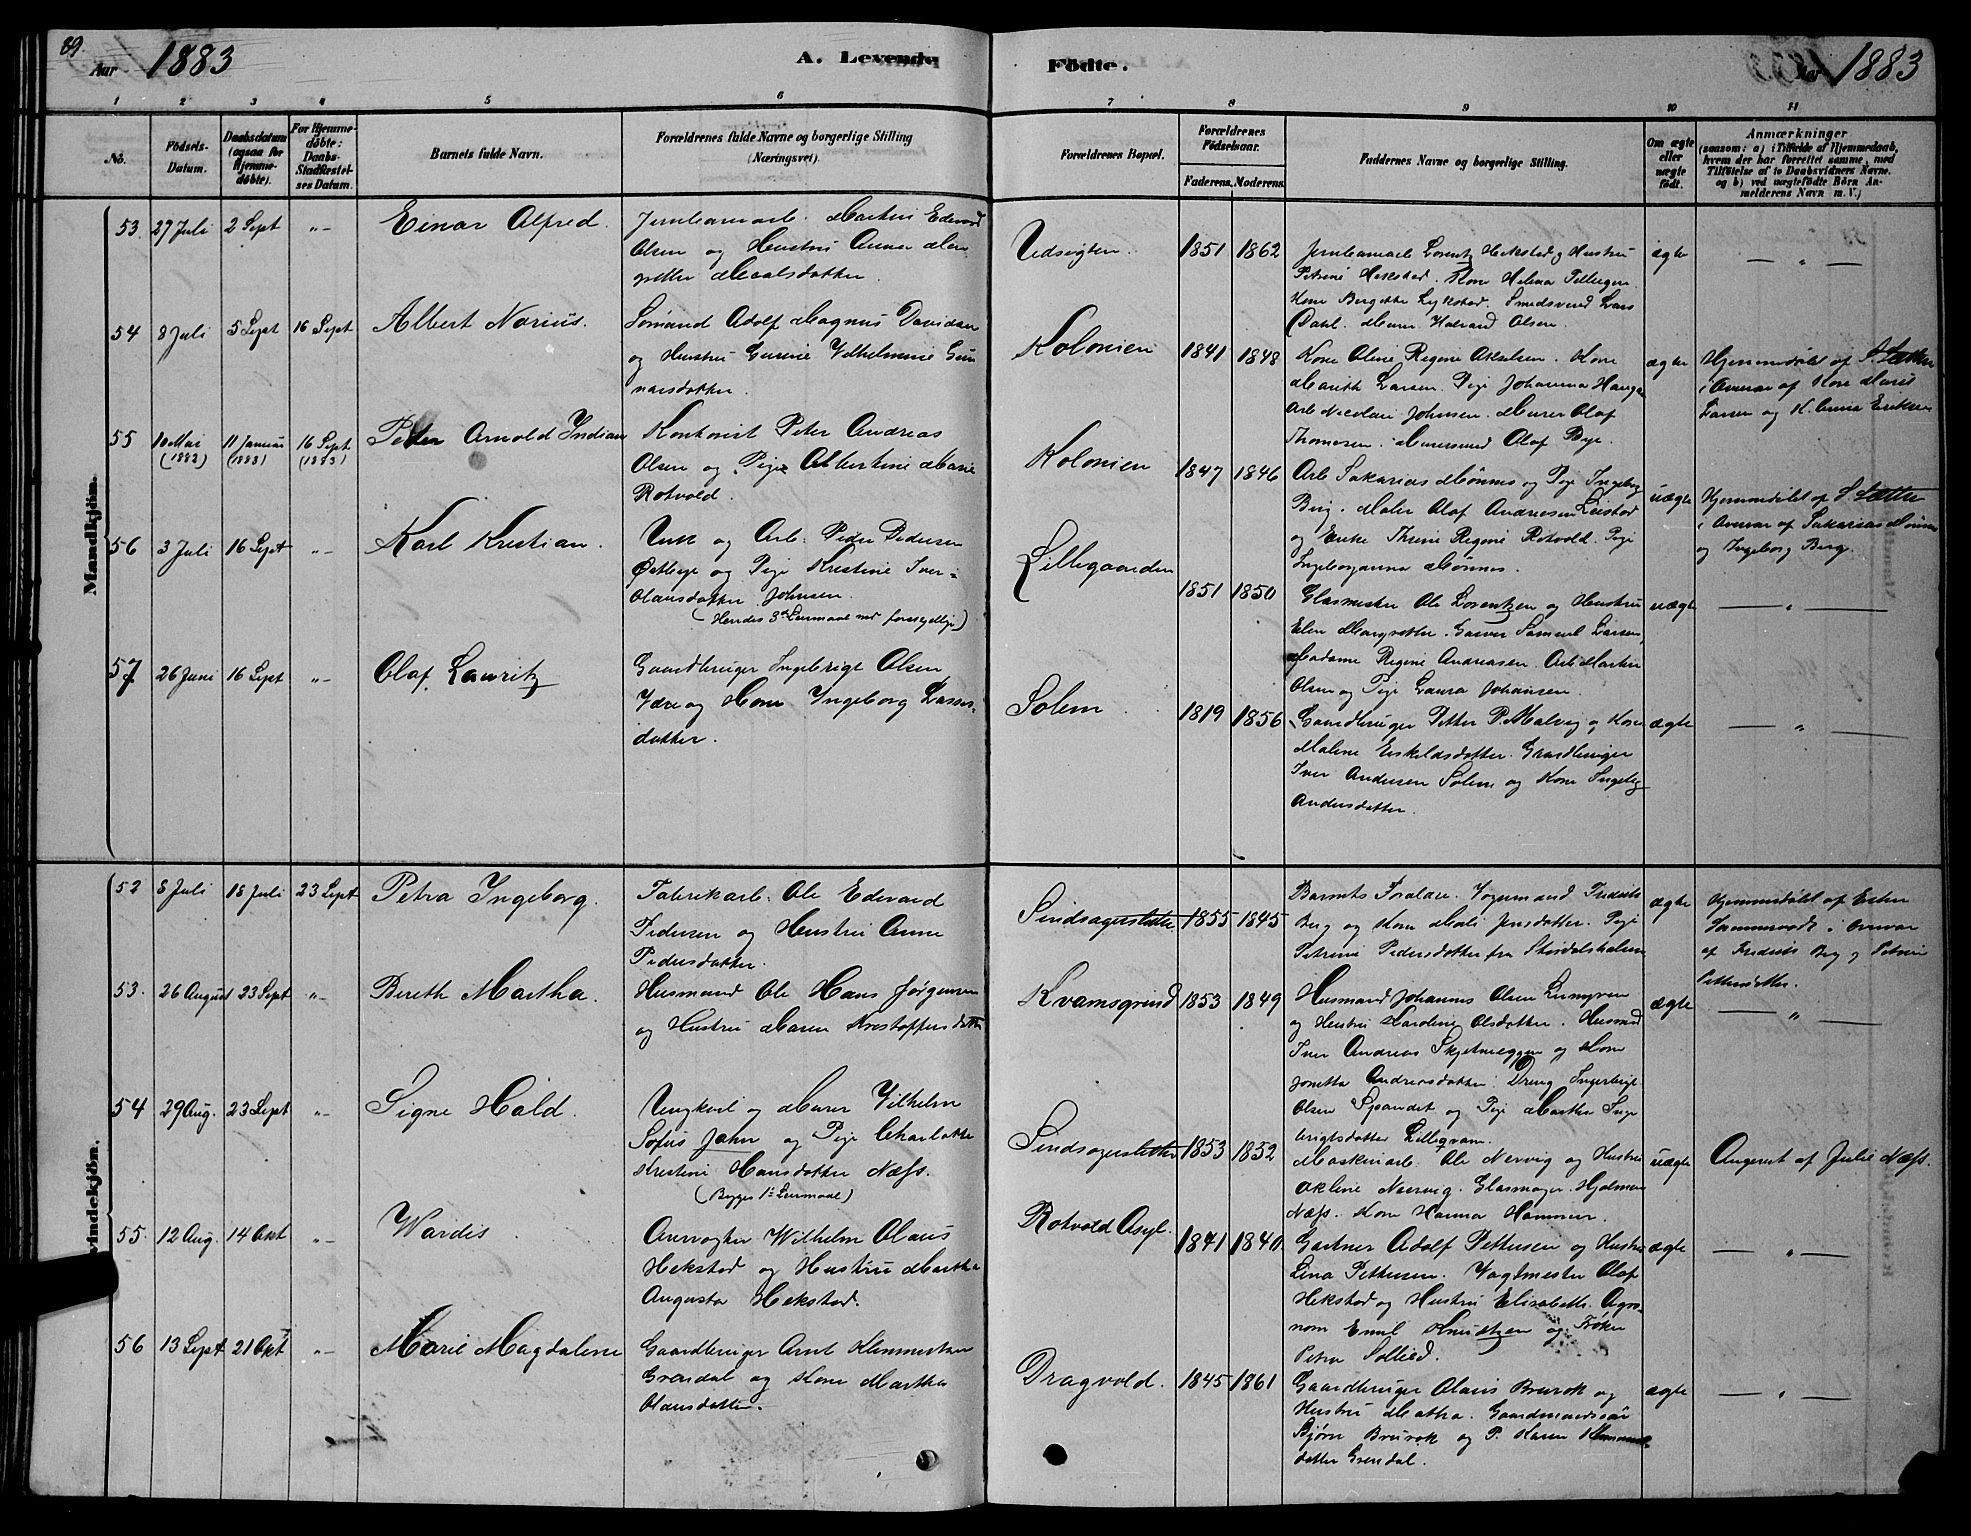 89.
Aar 1883
A. Levende
Födte.
Aar 1883
1 2 3 4 5 6 7 8 9 10 11
No.
Födsels-
Datum.
Daabsdatum
(ogsaa for
Hjemme-
döbte).
For Hjemme-
döbte:
Daabs-
Stadfæstel-
ses Datum.
Barnets fulde Navn.
Forældrenes fulde Navne og borgerlige Stilling
(Næringsvei).
Forældrenes Bopæl.
Forældrenes
Födselsaar.
Faderens. Moderens.
Faddernes Navne og borgerlige Stilling.
Om ægte
eller
uægte
födt.
Anmærkninger
(saasom: a) i Tilfælde af Hjemmedaab,
hvem der har forrettet samme, med
Tilföielse af to Daabsvidners Navne.
og b) ved uægtefödte Börn An-
melderens Navn m. V.)
Mandkjön.
53. 27 Juli 2 Sept "—
Einar Alfred.
Jernbanearb. Martin Edvard
Olsen og Hustru Anna Mar
grethe
Udsigten. 1851 1862
Jernbanearb Lorentz Hekstad og Hustru
Petrine Hekstad. Kone Helena
Kone Bergitte Lykstad. Smedsvend Lars
Dahl. Murer Halvard Olsen.
ægte — " —
54 8 Juli 5 Sept 16 Sept
Albert Narius.
Sömand Adolf Magnus Davidsen
og Hustru Gurine Vilhelmine Gun
narsdatter.
Kolonien 1841 1848
Kone Oline Regine Akselsen. Kone
Marith Larsen. Pige Johanna Haugan
Arb Nicolai Johnsen. Murer Olaf
Thomesen. Murersvend Olaf Bye.
ægte
Hjemmedöbt af S. Sætter
i Overvær af Kone Marit
Larsen og K. Anna Eriksen
55 10 Mai (1882) 11 Januar (1883) 16 Sept (1883)
Petter Arnold Indian
Kontorist Peter Andreas
Olsen og Pige Albertine Marie
Rotvold.
Kolonien 1847 1846
Arb Sakarias Mönnes og Pige Ingeborg
Berg. Maler Olaf Andreasen Leistad
og Enke Thrine Regine Rotvold. Pige
Ingeborganna Mönnes.
uægte
Hjemmedöbt af S. Sætter
i Overvær af Sakarias Mönnes
og Ingeborg Berg.
56 3 Juli 16 Sept "—
Karl Kristian.
Unk og Arb. Peder Pedersen
Østbye og Pige Kristine Iver-
Olausdatter Johnsen.
(Hendes 3de Leiermaal med forskjellige)
Lillegaarden 1851 1850
Glasmester Ole Lorentzen og Hustru
Elen Margrethe. Garver Samuel Larsen
Madame Regine Andreasen. Arb Martin
Olsen og Pige Laura Johansen.
uægte — " —
57 26 Juni 16 Sept "—
Olaf Lauritz
Gaardbruger Ingebrigt Olsen
Være og Kone Ingeborg Lasses-
datter.
Solem 1819 1856
Gaardbruger Petter P. Malvig og Kone
Malene Eskildsdatter. Gaardbruger
Iver Andersen Solem og Kone Ingeborg
Andersdatter.
ægte — " —
vindekjön.
52 8 Juli 18 Juli 23 Sept
Petra Ingeborg.
Fabrikarb. Ole Edvard
Pedersen og Hustru Anne
Pedersdatter.
Sindsagersletten 1855 1845
Barnets Forældre. Vognmand Frederik
Berg og Kone Mali Jensdatter. Pige
Petrine Pedersdatter fra Stördalshalsen
ægte
Hjemmedöbt af Esten
i Overvær
af Frederik Berg og Petrine
Pettersdatter.
53. 26 August 23 Sept "—
Bereth Martha.
Husmand Ole Hans Jörgensen
og Hustru Maren Kristoffersdatter
Kvamsgrind 1853 1849
Husmand Johannes Olsen
og Hustru Olsdatter. Husmd
Iver Andreas og Kone
Jonetta Andreasdatter. Dreng Ingebrigt
Olsen Spandet og Pige Martha Inge
brigtsdatter Lillegvam.
ægte — " —
54 29 Aug. 23 Sept "—
Signe Hald.
Ungkarl og Murer Vilhelm
Sofus Jahn og Pige Charlotte
Kristine Hansdatter Næss.
(Begges 1ste Leiermaal)
Sindsagersletten 1853 1852
Maskinarb. Ole Nervig og Hustru
Okline Nervig. Glasmager Hjalmar
Næss. Kone Hanna Hammer.
uægte
Angivet af Julie Næss.
55. 12 Aug. 14 Okt "—
Wardis.
Overvogter Wilhelm Olaus
Hekstad og Hustru Martha
Augusta Hekstad.
Rotvold Asyl. 1841 1840
Gartner Adolf Pettersen og Hustru
Lina Pettersen. Vagtmester Olaf
Hekstad og Hustru Elisabeth. Agro-
nom Emil Knudtzen og Fröken
Petra Sollied.
ægte — " —
56 13 Sept 21 Okt "—
Marie Magdalene
Gaardbruger Arnt Klemmetsen
Grendal og Kone Martha
Olausdatter.
Dragvold. 1845 1861
Gaardbruger Olaus Brurok og
Hustru Martha. Gaardmandssön
Bjørn Brurok og P. Karen Klemmets
datter Grendal.
ægte — " —